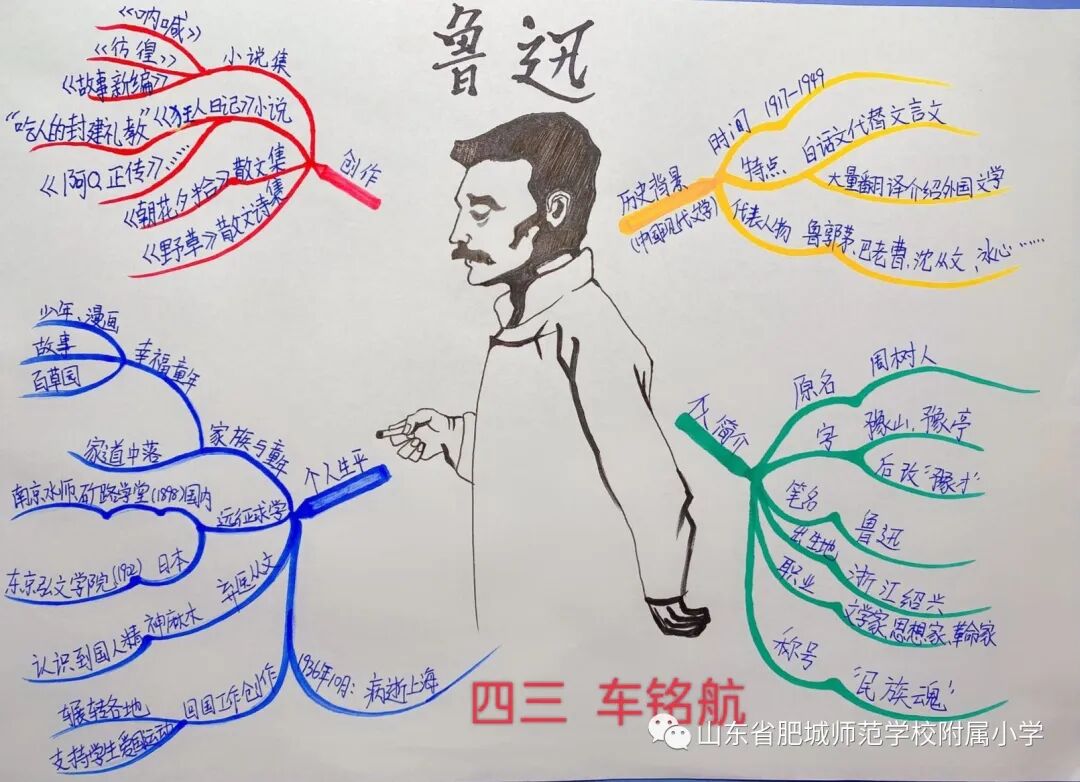 鲁迅
《呐喊》
《彷徨》
《故事新编》
小说集
"吃人的封建礼教"《狂人日记》小说
《阿Q正传》……
《朝花夕拾》散文集
《野草》散文诗集
创作
历史背景
(中国现代文学)
时间 1917-1949
特点 白话文代替文言文
大量翻译介绍外国文学
代表人物 鲁郭茅、巴老曹,沈从文,冰心……
少年、漫画
故事
百草园
幸福童年
家道中落
家族与童年
个人生平
南京水师 矿路学堂(1898)国内
远征求学
东京弘文学院 日本
弃医从文
认识到国人精神麻木
回国工作创作
辗转各地
支持学生爱国运动
1936年10月: 病逝上海
个人简介
原名 周树人
字 豫山,豫亭
后改"豫才"
笔名 鲁迅
出生地 浙江绍兴
职业 文学家,思想家,革命家
称号 "民族魂"
四三 车铭航
山东省肥城师范学校附属小学